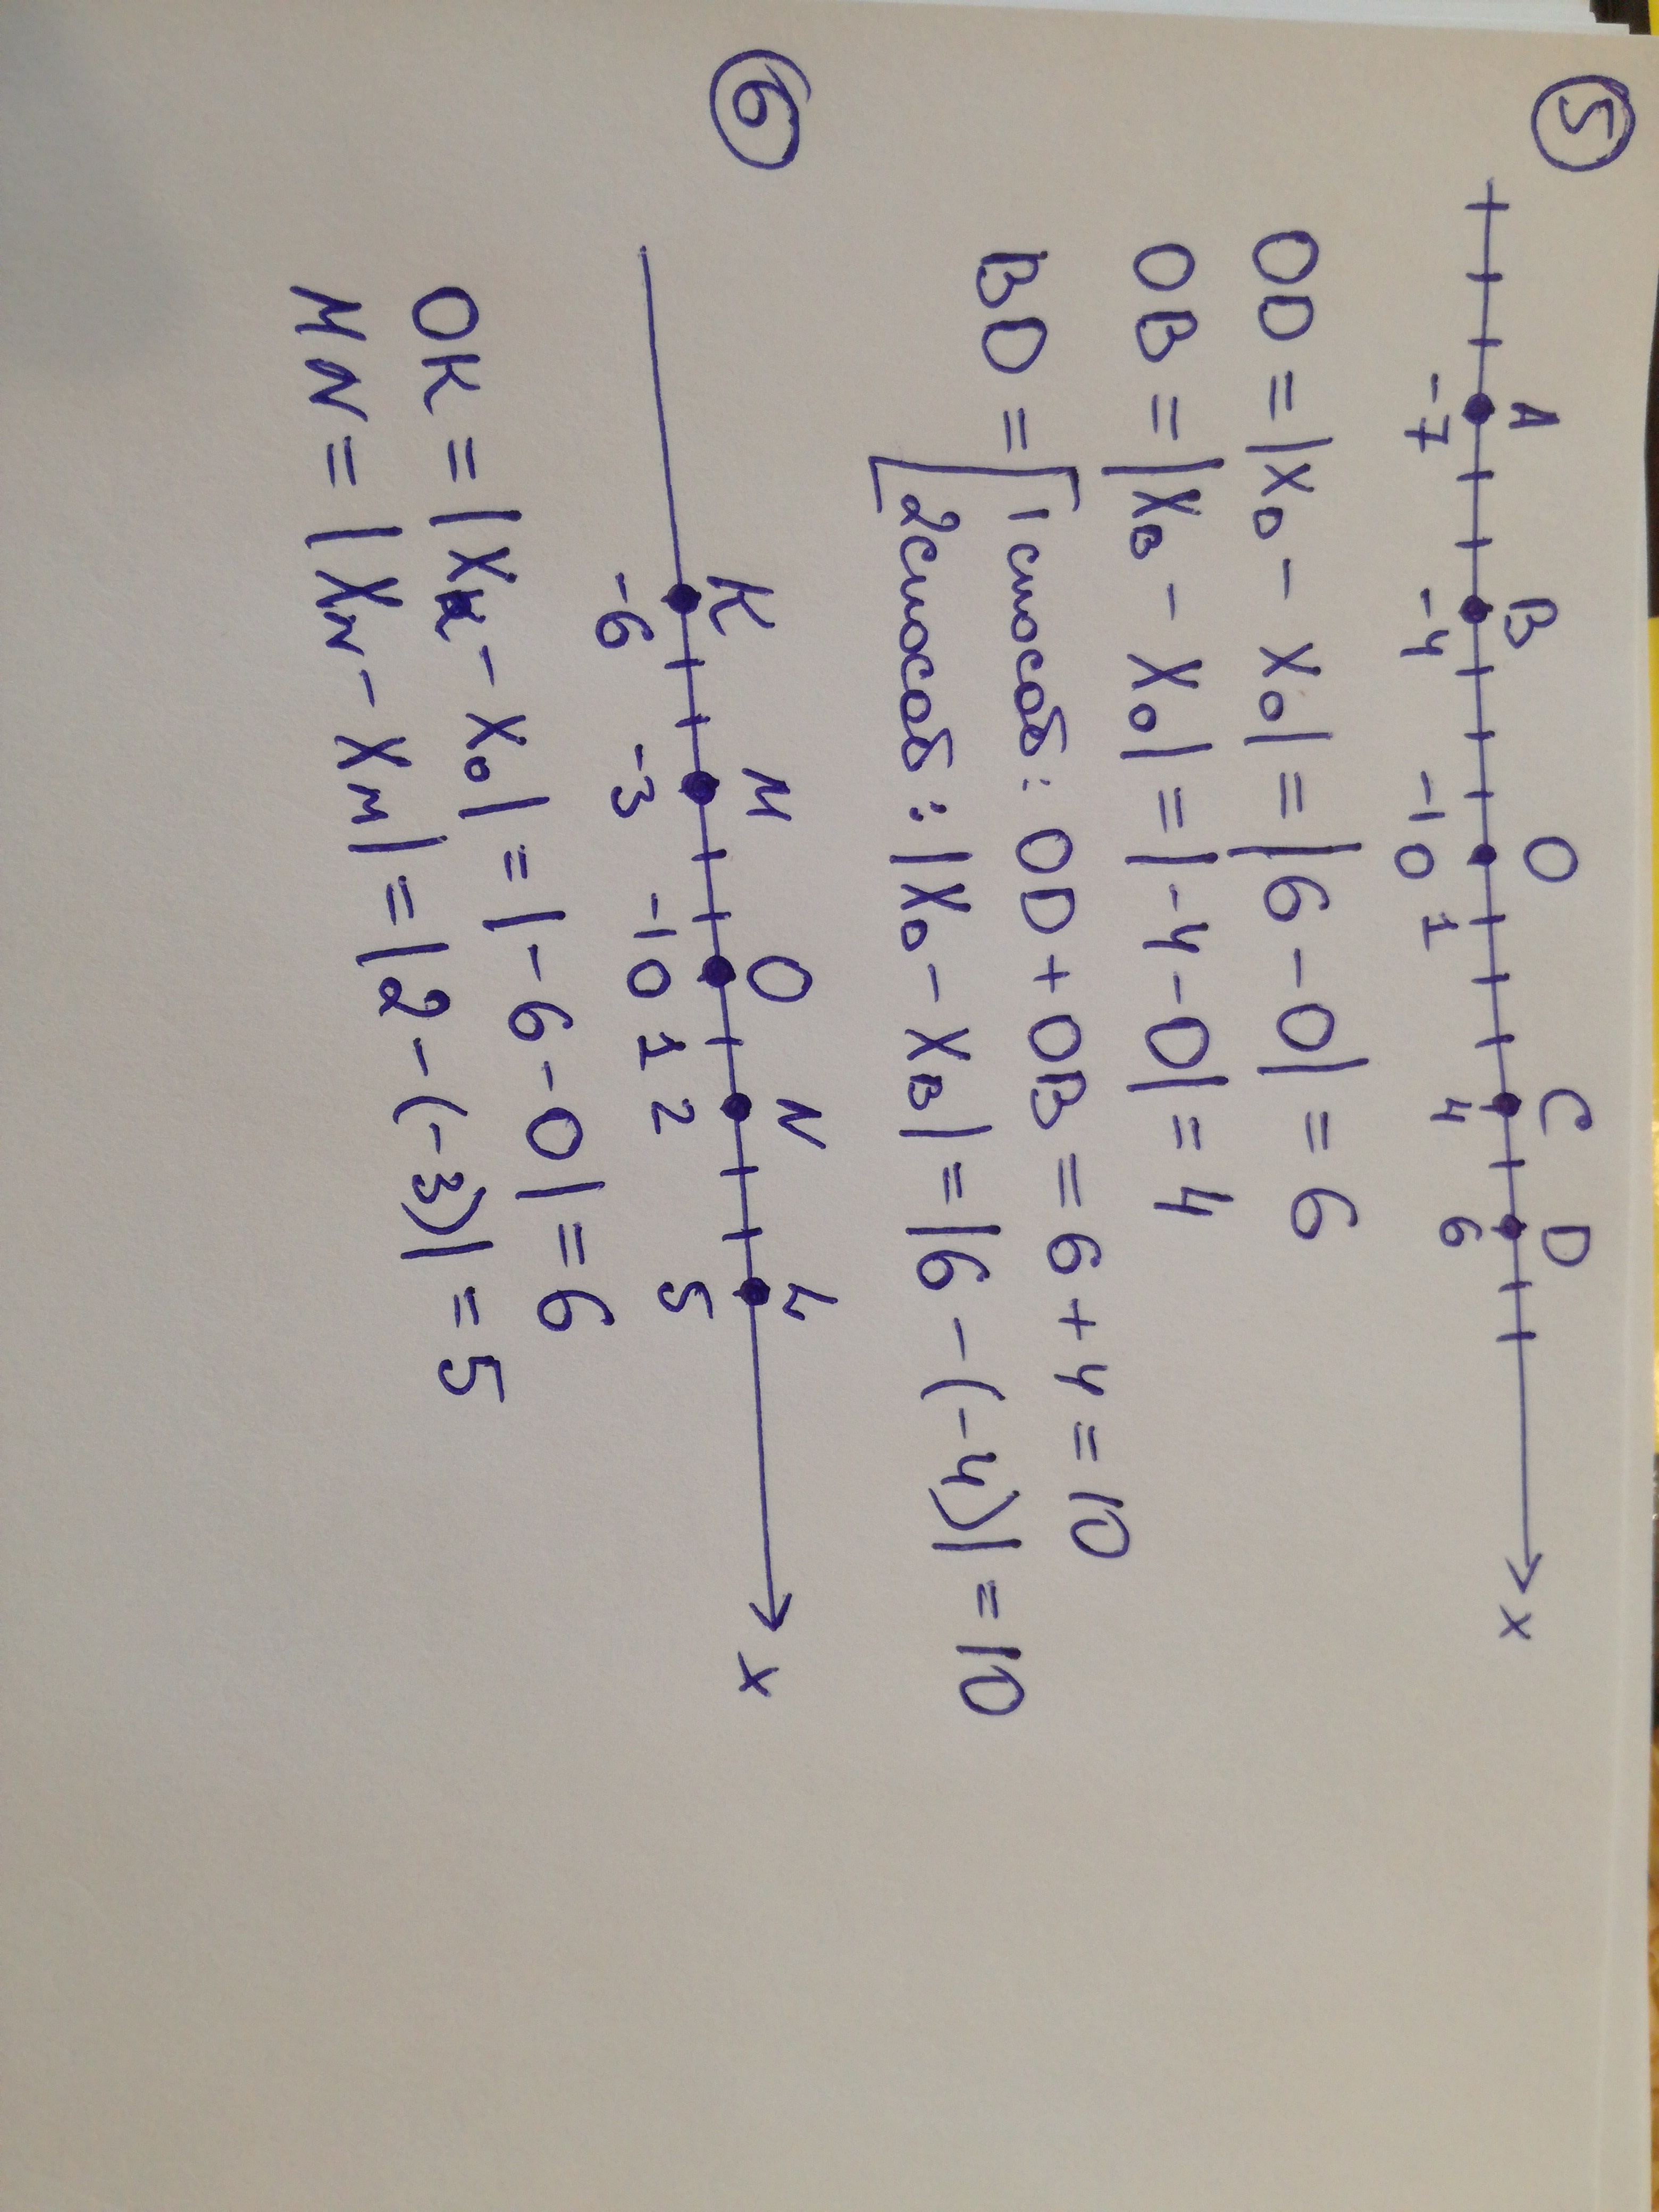 ⑤
A B O C D
-7 -4 -1 0 1 4 6 x
OD = |x_D - x_O| = |6 - 0| = 6
OB = |x_B - x_O| = |-4 - 0| = 4
BD = [1 способ: OD + OB = 6 + 4 = 10
[2 способ: |x_D - x_B| = |6 - (-4)| = 10
⑥
K M O N L
-6 -3 -1 0 1 2 5 x
OK = |x_K - x_O| = |-6 - 0| = 6
MN = |x_N - x_M| = |2 - (-3)| = 5